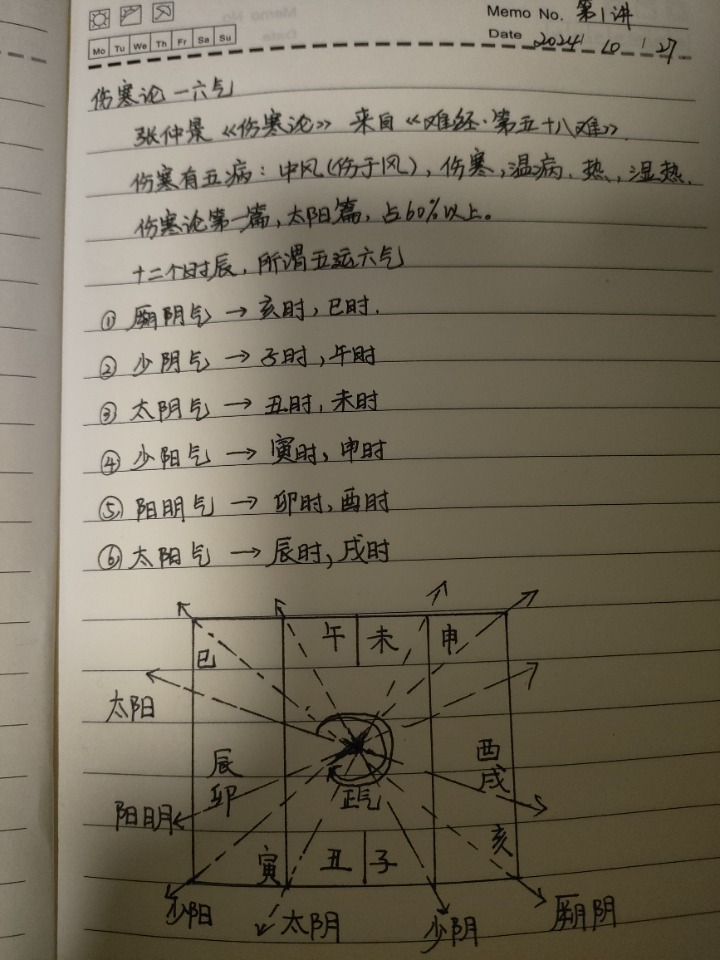 Memo No. 第1讲
Mo Tu We Th Fr Sa Su
Date 2024 10 27
伤寒论一六气
张仲景《伤寒论》来自《难经·第五十八难》.
伤寒有五病：中风(伤于风)，伤寒，温病、热，湿热.
伤寒论第一篇，太阳篇，占60%以上。
十二个时辰，所谓五运六气
① 厥阴气 → 亥时，巳时.
② 少阴气 → 子时，午时
③ 太阴气 → 丑时，未时
④ 少阳气 → 寅时，申时
⑤ 阳明气 → 卯时，酉时
⑥ 太阳气 → 辰时，戌时
午 未 申
巳
太阳
辰 酉
戌
卯
阳明 正气
亥
寅 丑 子
少阳 太阴 少阴 厥阴